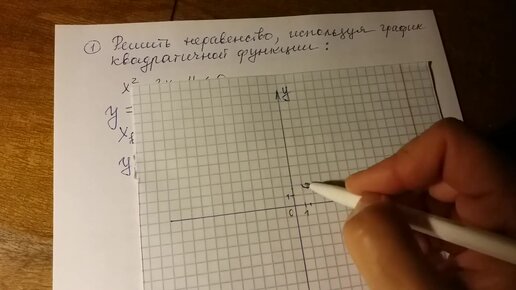 ① Решить неравенство, используя график
квадратичной функции:
y =
y
1
0 1